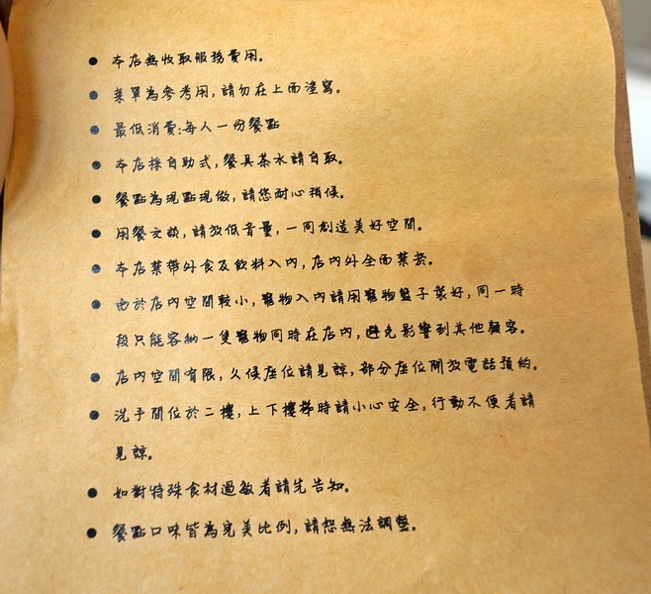 ● 本店無收取服務費用。
● 菜單為參考用，請勿在上面塗寫。
● 最低消費：每人一份餐點
● 本店採自助式，餐具茶水請自取。
● 餐點為現點現做，請您耐心稍候。
● 用餐交談，請放低音量，一同創造美好空間。
● 本店禁帶外食及飲料入內，店內外全面禁菸。
● 由於店內空間較小，寵物入內請用寵物籃子裝好，同一時
段只能容納一隻寵物同時在店內，避免影響到其他顧客。
● 店內空間有限，久候座位請見諒，部分座位開放電話預約。
● 洗手間位於二樓，上下樓梯時請小心安全，行動不便者請
見諒。
● 如對特殊食材過敏者請先告知。
● 餐點口味皆為完美比例，請恕無法調整。